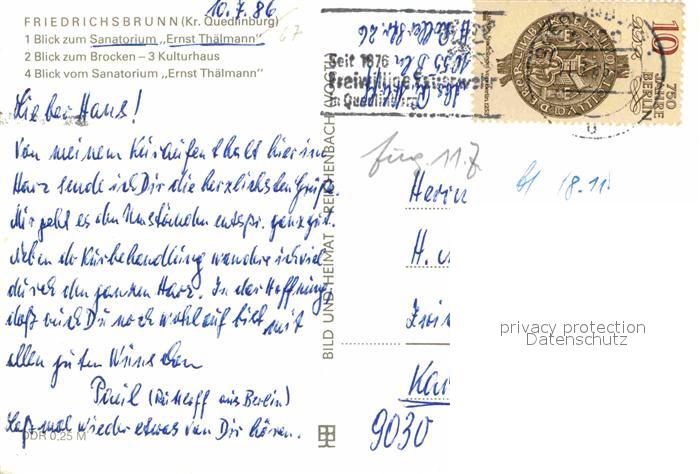 10.7.86
FRIEDRICHSBRUNN (Kr. Quedlinburg)
1 Blick zum Sanatorium „Ernst Thälmann"
2 Blick zum Brocken – 3 Kulturhaus
4 Blick vom Sanatorium „Ernst Thälmann"
Lieber Hans!
Von meinem Kuraufenthalt hier im
Harz sende ich Dir die herzlichsten Grüße.
Mir geht es den Umständen entspr. ganz gut.
Neben der Kurbehandlung wandere ich viel
durch den ganzen Harz. In der Hoffnung,
daß auch Du noch wohlauf bist mit
allen guten Wünschen
Paul (aus Berlin)
Laß mal wieder etwas von Dir hören.
DDR 0,25 M
BILD UND HEIMAT REICHENBACH (VOGTL)
Seit 1876
Freiwillige Feuerwehr
in Quedlinburg
10
750
JAHRE
BERLIN
DDR
11.7
18.11
Herrn
H.
9030
privacy protection
Datenschutz